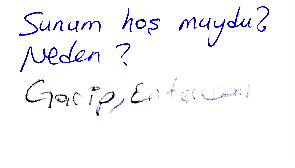 Sunum hoş muydu?
Neden ?
Garip,